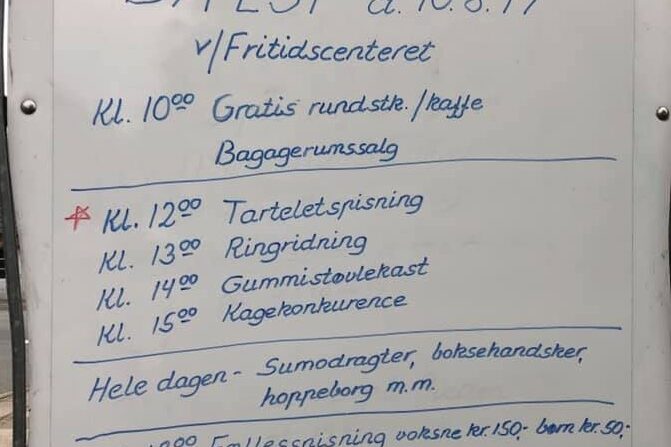 v/Fritidscenteret
Kl. 10⁰⁰ Gratis rundstk./kaffe
Bagagerumssalg
Kl. 12⁰⁰ Tarteletspisning
Kl. 13⁰⁰ Ringridning
Kl. 14⁰⁰ Gummistøvlekast
Kl. 15⁰⁰ Kagekonkurence
Hele dagen - Sumodragter, boksehandsker,
hoppeborg m.m.
Fællesspisning voksne kr. 150,- børn kr. 50,-